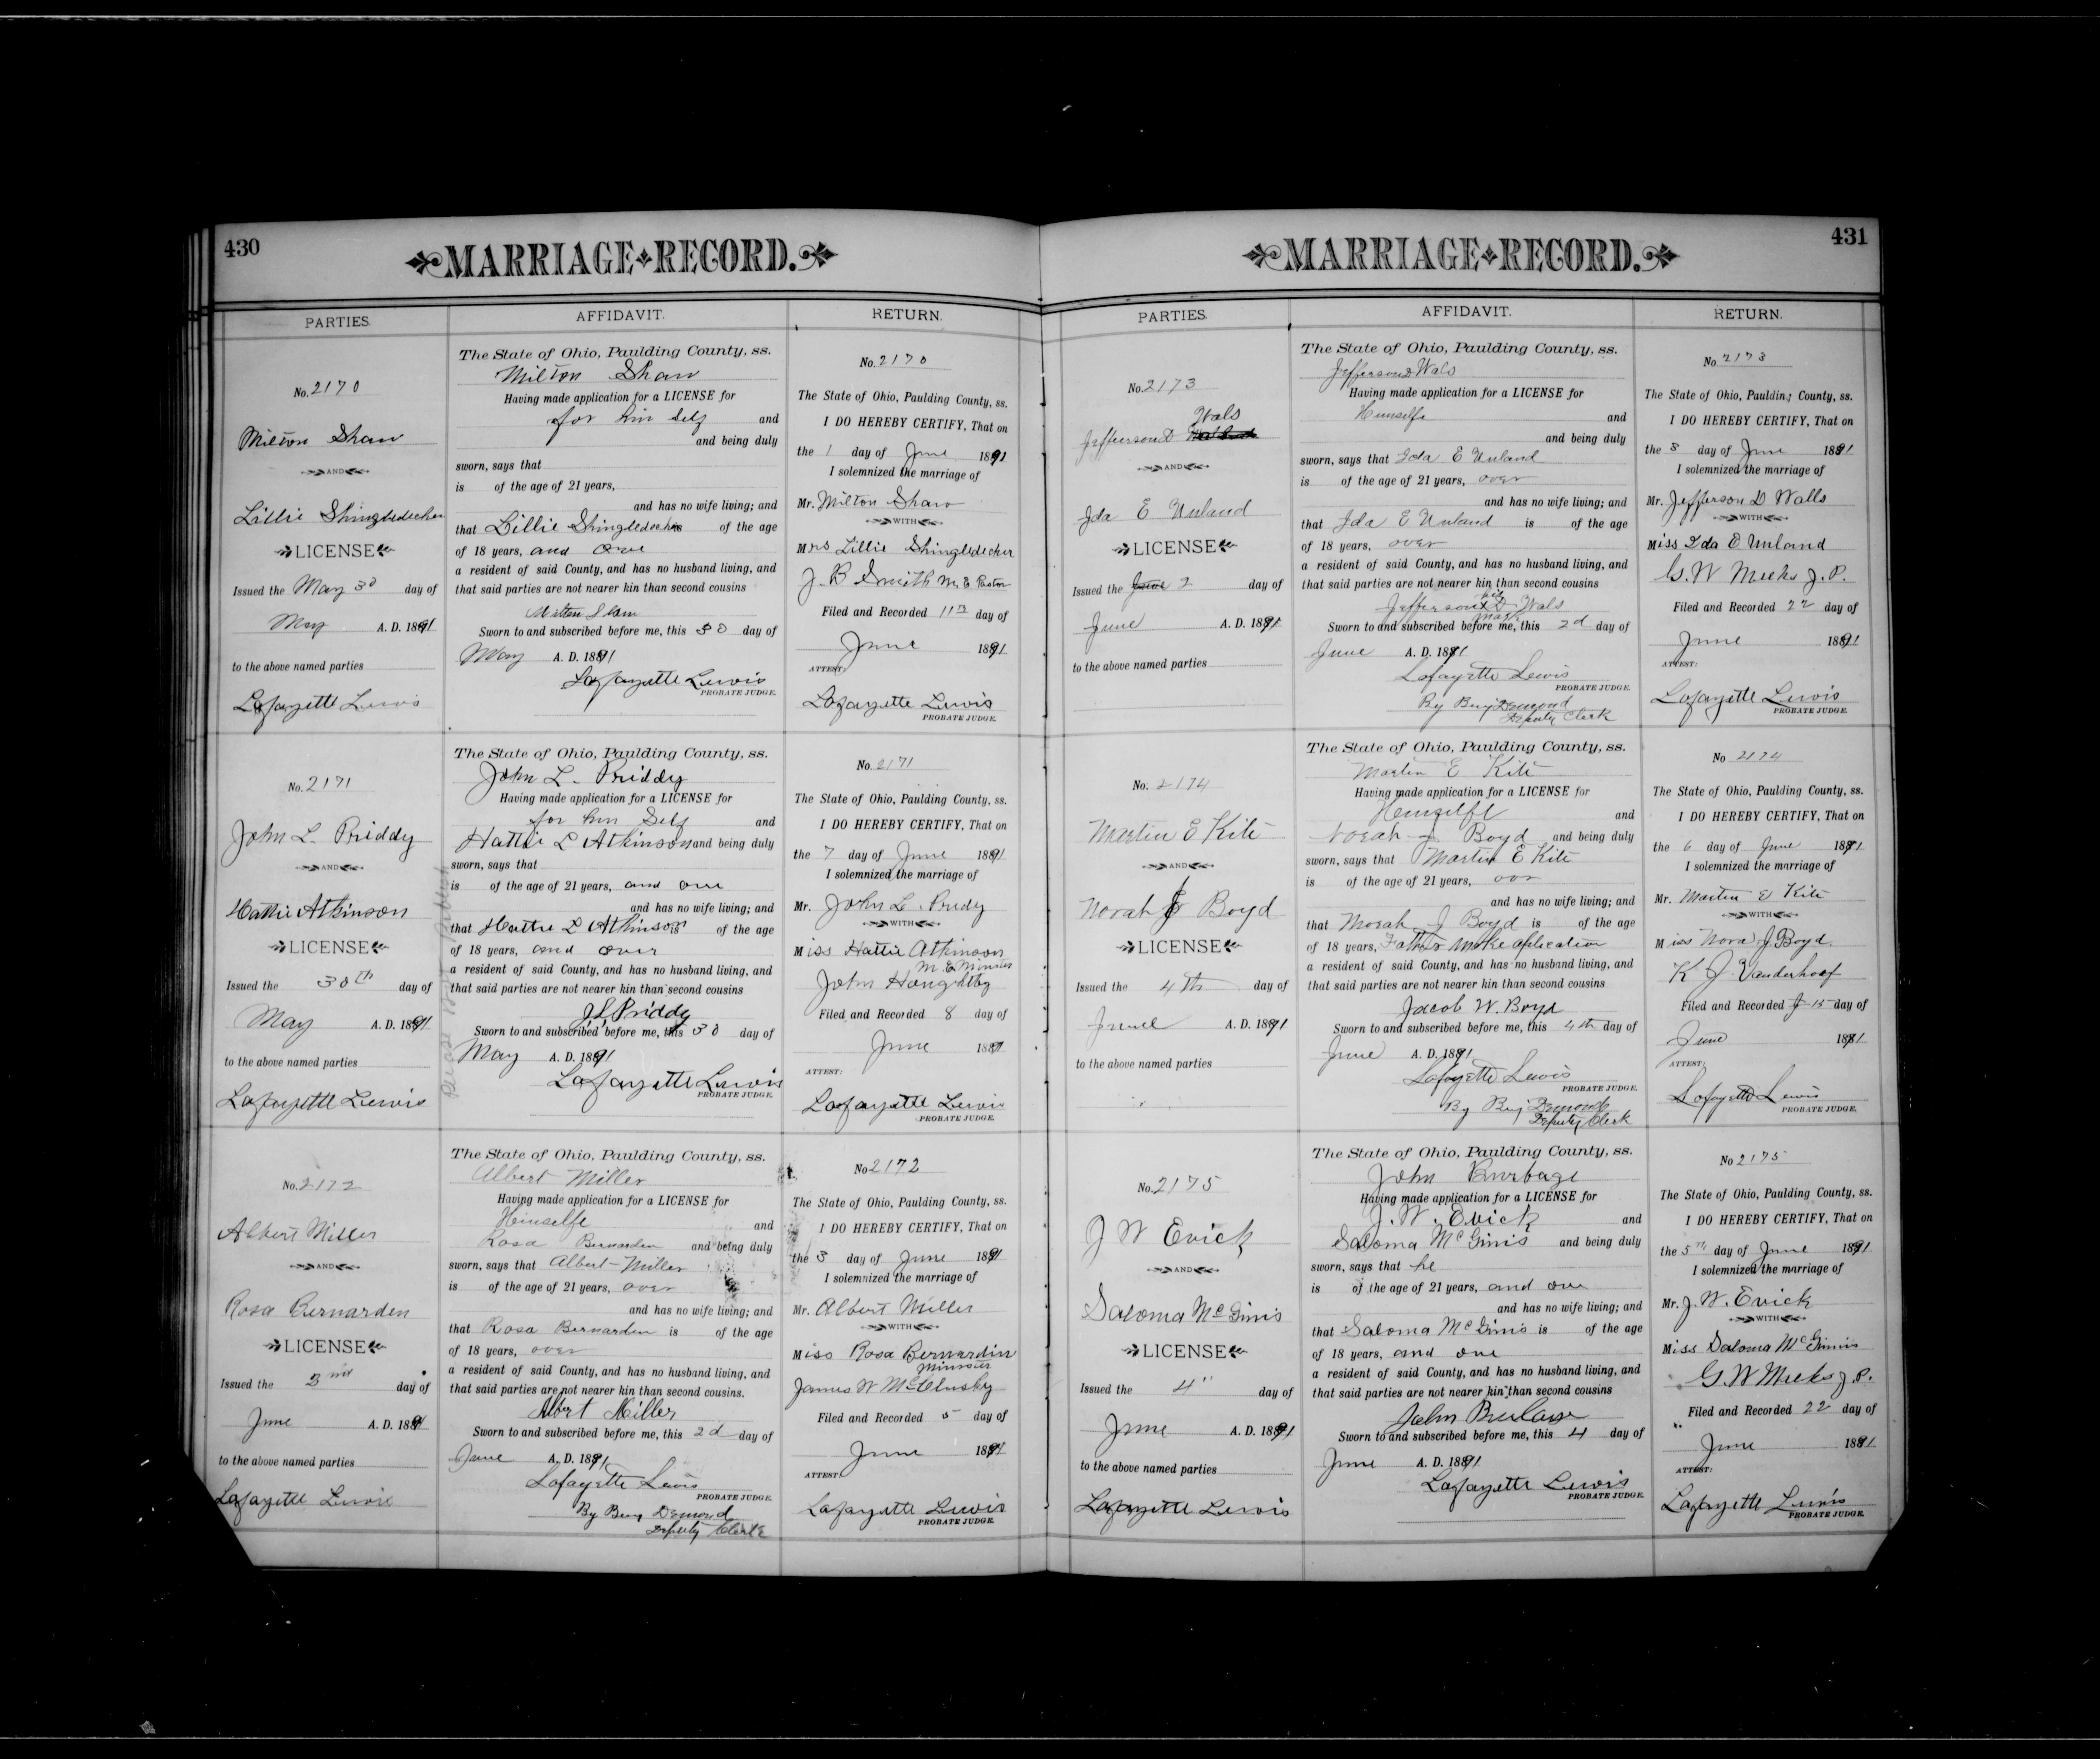 430
MARRIAGE RECORD.
PARTIES.
AFFIDAVIT.
RETURN.
No. 2170
Milton Shaw
AND
Lillie Shingledecker
LICENSE
Issued the May 30 day of
May A. D. 1891
to the above named parties
Lafayette Lewis
The State of Ohio, Paulding County, ss.
Milton Shaw
Having made application for a LICENSE for
for him self and
and being duly
sworn, says that
is of the age of 21 years,
and has no wife living; and
that Lillie Shingledecker is of the age
of 18 years, and over
a resident of said County, and has no husband living, and
that said parties are not nearer kin than second cousins
Milton Shaw
Sworn to and subscribed before me, this 30 day of
May A. D. 1891
Lafayette Lewis
PROBATE JUDGE.
No. 2170
The State of Ohio, Paulding County, ss.
I DO HEREBY CERTIFY, That on
the 1 day of June 1891
I solemnized the marriage of
Mr. Milton Shaw
WITH
Mrs Lillie Shingledecker
J. B Smith M. E Pastor
Filed and Recorded 11th day of
June 1891
ATTEST:
Lafayette Lewis
PROBATE JUDGE.
No. 2171
John L. Priddy
AND
Hattie Atkinson
LICENSE
Issued the 30th day of
May A. D. 1891
to the above named parties
Lafayette Lewis
The State of Ohio, Paulding County, ss.
John L. Priddy
Having made application for a LICENSE for
for him Self and
Hattie L Atkinson and being duly
sworn, says that
is of the age of 21 years, and over
and has no wife living; and
that Hattie L Atkinson is of the age
of 18 years, and over
a resident of said County, and has no husband living, and
that said parties are not nearer kin than second cousins
J L Priddy
Sworn to and subscribed before me, this 30 day of
May A. D. 1891
Lafayette Lewis
PROBATE JUDGE.
No. 2171
The State of Ohio, Paulding County, ss.
I DO HEREBY CERTIFY, That on
the 7 day of June 1891
I solemnized the marriage of
Mr. John L. Pridy
WITH
Miss Hattie Atkinson
M. E Minister
John Houghtby
Filed and Recorded 8 day of
June 1891
ATTEST:
Lafayette Lewis
PROBATE JUDGE.
No. 2172
Albert Miller
AND
Rosa Bernarden
LICENSE
Issued the 2nd day of
June A. D. 1891
to the above named parties
Lafayette Lewis
The State of Ohio, Paulding County, ss.
Albert Miller
Having made application for a LICENSE for
Himselfe and
Rosa Bernarden and being duly
sworn, says that Albert Miller
is of the age of 21 years, over
and has no wife living; and
that Rosa Bernarden is of the age
of 18 years, over
a resident of said County, and has no husband living, and
that said parties are not nearer kin than second cousins.
Albert Miller
Sworn to and subscribed before me, this 2d day of
June A. D. 1891
Lafayette Lewis
PROBATE JUDGE.
By Benj Demond
Deputy Clerk
No 2172
The State of Ohio, Paulding County, ss.
I DO HEREBY CERTIFY, That on
the 3 day of June 1891
I solemnized the marriage of
Mr. Albert Miller
WITH
Miss Rosa Bernardin
Minister
James W McClusky
Filed and Recorded 5 day of
June 1891
ATTEST:
Lafayette Lewis
PROBATE JUDGE.
431
MARRIAGE RECORD.
PARTIES.
AFFIDAVIT.
RETURN.
No. 2173
Wals
Jefferson D
AND
Ida E Unland
LICENSE
Issued the June 2 day of
June A. D. 1891
to the above named parties
The State of Ohio, Paulding County, ss.
Jefferson D Wals
Having made application for a LICENSE for
Himselfe and
and being duly
sworn, says that Ida E Unland
is of the age of 21 years, over
and has no wife living; and
that Ida E Unland is of the age
of 18 years, over
a resident of said County, and has no husband living, and
that said parties are not nearer kin than second cousins
his
Jefferson X D Wals
mark
Sworn to and subscribed before me, this 2d day of
June A. D. 1891
Lafayette Lewis
PROBATE JUDGE.
By Benj Demond
Deputy Clerk
No 2173
The State of Ohio, Paulding County, ss.
I DO HEREBY CERTIFY, That on
the 3 day of June 1891
I solemnized the marriage of
Mr. Jefferson D Walls
WITH
Miss Ida E Unland
G. W Meeks J. P.
Filed and Recorded 22 day of
June 1891
ATTEST:
Lafayette Lewis
PROBATE JUDGE.
No. 2174
Martin E Kite
AND
Norah J Boyd
LICENSE
Issued the 4th day of
June A. D. 1891
to the above named parties
The State of Ohio, Paulding County, ss.
Martin E Kite
Having made application for a LICENSE for
Himselfe and
Norah J Boyd and being duly
sworn, says that Martin E Kite
is of the age of 21 years, over
and has no wife living; and
that Norah J Boyd is of the age
of 18 years, Father make aplication
a resident of said County, and has no husband living, and
that said parties are not nearer kin than second cousins
Jacob W. Boyd
Sworn to and subscribed before me, this 4th day of
June A. D. 1891
Lafayette Lewis
PROBATE JUDGE.
By Benj Demond
Deputy Clerk
No 2174
The State of Ohio, Paulding County, ss.
I DO HEREBY CERTIFY, That on
the 6 day of June 1891
I solemnized the marriage of
Mr. Martin E Kite
WITH
Miss Nora J. Boyd.
K J Vanderhoof
Filed and Recorded 15 day of
June 1891
ATTEST:
Lafayette Lewis
PROBATE JUDGE.
No. 2175
J W Evick
AND
Saloma McGinis
LICENSE
Issued the 4" day of
June A. D. 1891
to the above named parties
Lafayette Lewis
The State of Ohio, Paulding County, ss.
John Burbage
Having made application for a LICENSE for
J. W. Evick and
Saloma McGinis and being duly
sworn, says that he
is of the age of 21 years, and over
and has no wife living; and
that Saloma McGinis is of the age
of 18 years, and over
a resident of said County, and has no husband living, and
that said parties are not nearer kin than second cousins
John
Sworn to and subscribed before me, this 4 day of
June A. D. 1891
Lafayette Lewis
PROBATE JUDGE.
No 2175
The State of Ohio, Paulding County, ss.
I DO HEREBY CERTIFY, That on
the 5th day of June 1891
I solemnized the marriage of
Mr. J. W. Evick
WITH
Miss Saloma McGinnis
G. W Meeks J. P.
Filed and Recorded 22 day of
June 1891
ATTEST:
Lafayette Lewis
PROBATE JUDGE.